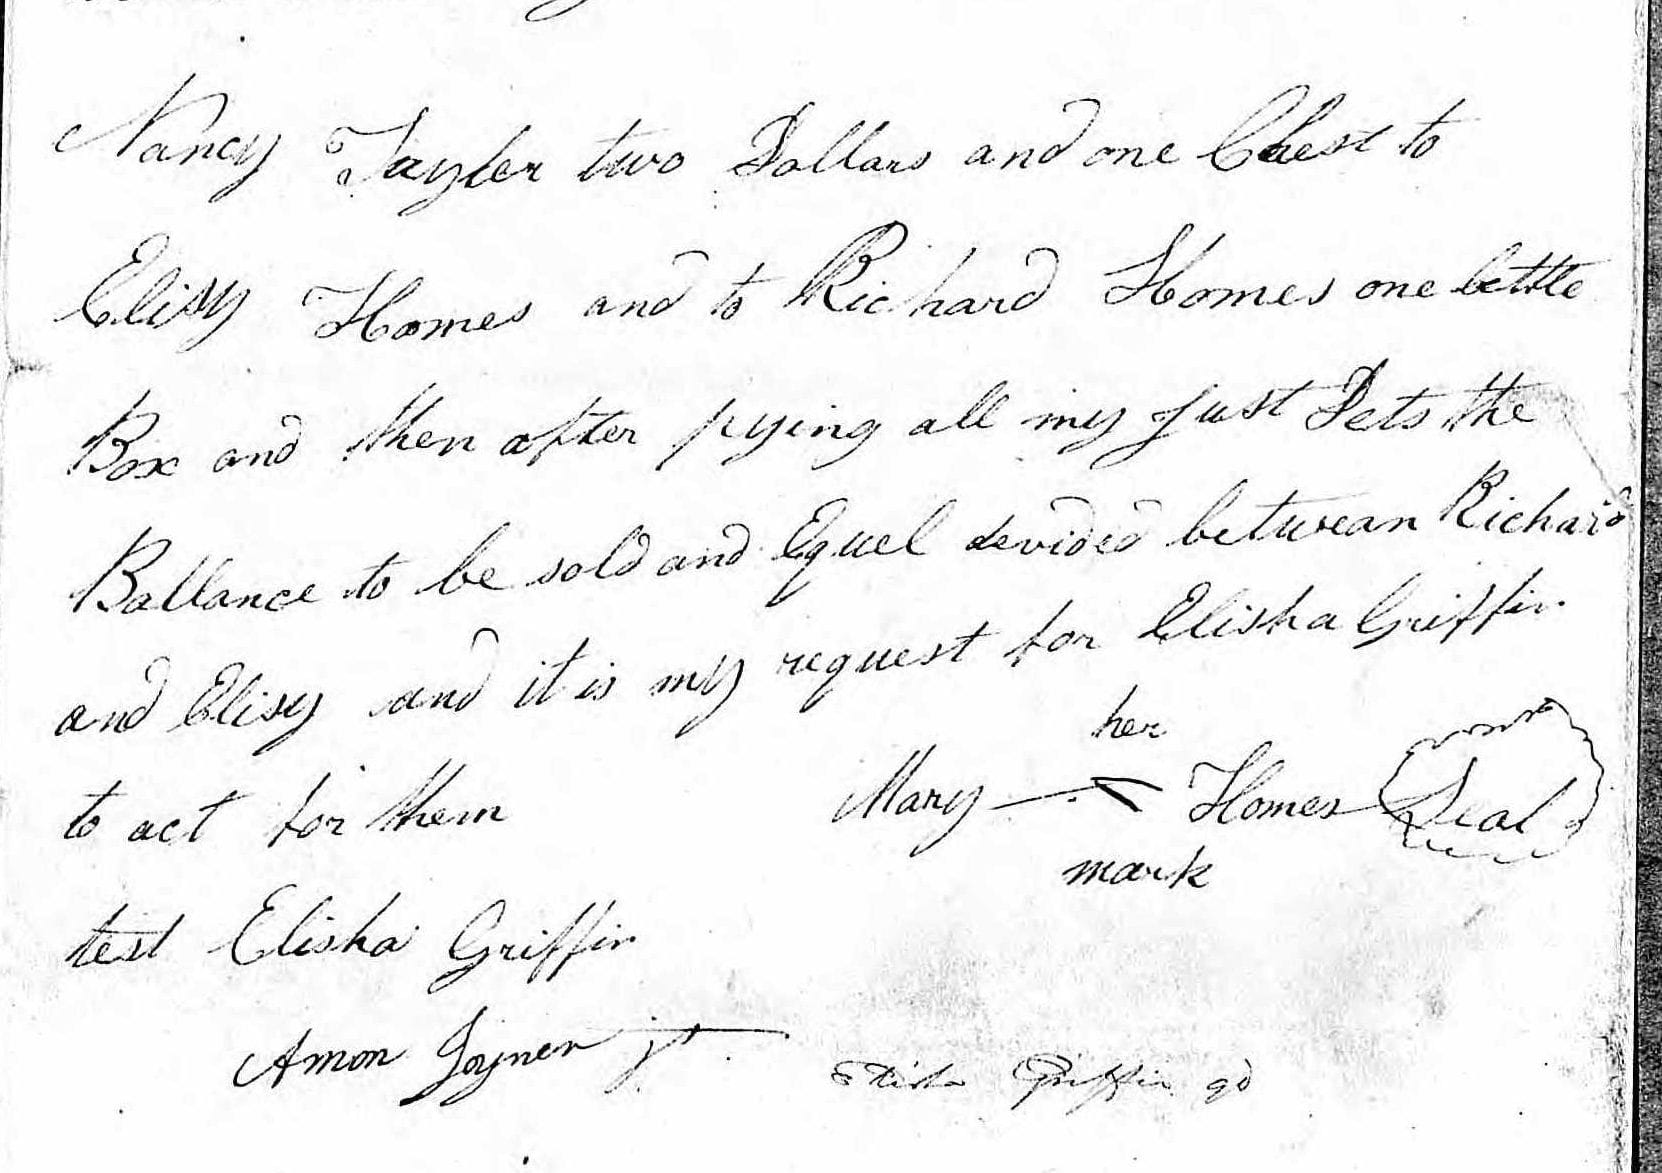 Nancy Tayler two Dollars and one Chest to
Elisy Homes and to Richard Homes one little
Box and then after pying all my Just Dets the
Ballance to be sold and Equel devided betwean Richard
and Elisy and it is my request for Elisha Griffin
her
to act for them Mary Homes Seal
mark
test Elisha Griffin
Amon Joyner jr
Elisha Griffin qd